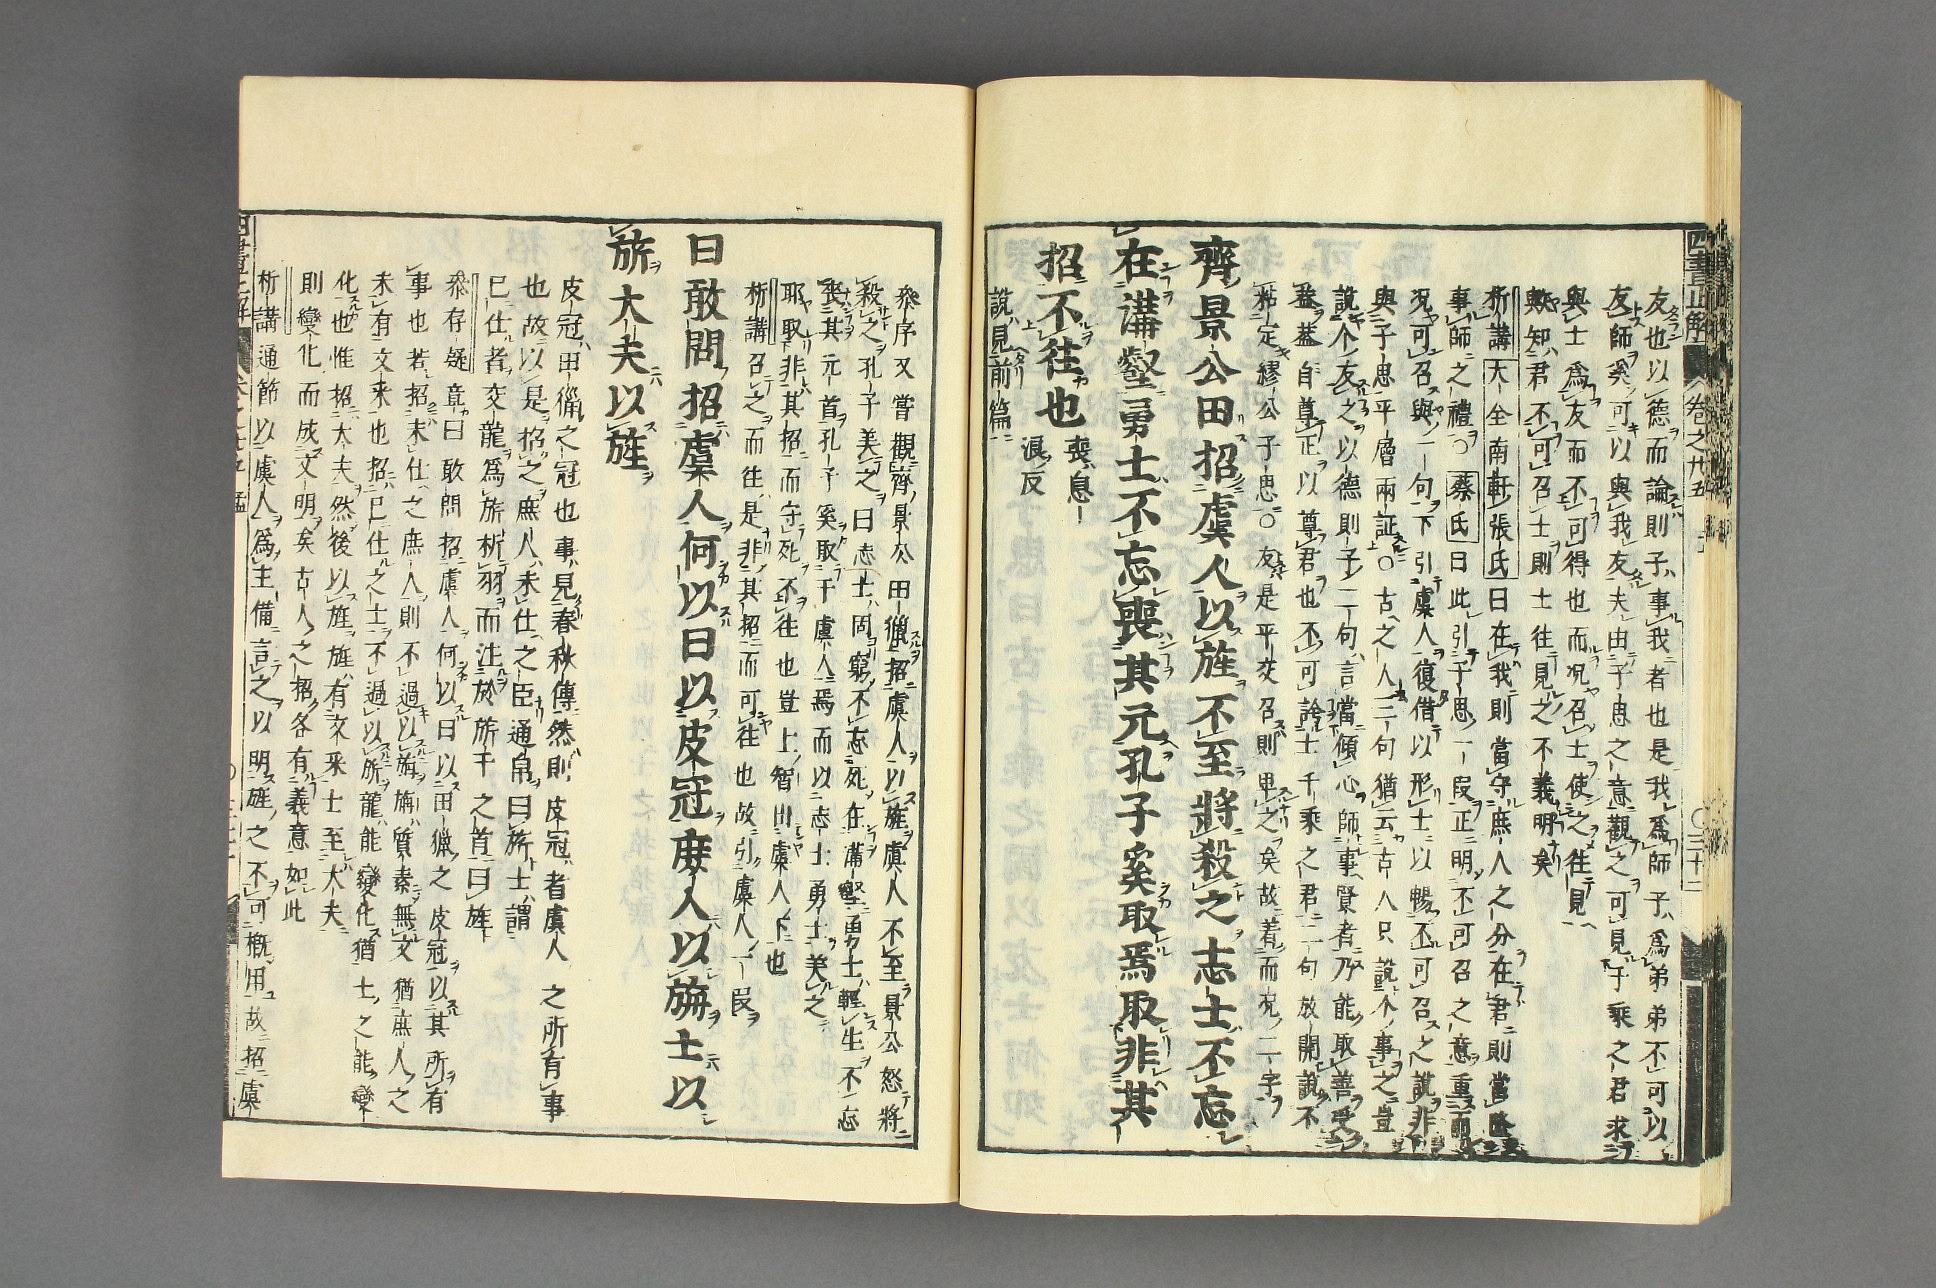 友也以德而論則子事我者也是我爲師子爲弟弟不可以
友師奚可以與我友夫由子思之意觀之可見千乘之君求
與士爲友而不可得也而况召士使之往見
歟知君不可召士則士往見之不義明矣
析講大全南軒張氏曰在我則當守庶人之分在君則當
事師之禮○蔡氏曰此引子思一段正明不可召之意重而
况可召與一句下引虞人復借以形士以暢不可召之說非
與子思平層兩証○古之人二句猶云古人只說个事之豈
說个友之以德則子二句言當傾心師事賢者乃能取善
益蓋自尊正以尊君也不可誇士千乘之君二句放開說不
粘定繆公子思○友是平交召則卑之矣故着而况二字
齊景公田招虞人以旌不至將殺之志士不忘
在溝壑勇士不忘喪其元孔子奚取焉取非其
招不往也 喪息浪反
說見前篇
參序又嘗觀齊景公田獵招虞人以旌虞人不至景公怒將
殺之孔子美之曰志士固窮不忘死在溝壑勇士輕生不忘
喪其元首孔子奚取于虞人焉而以志士勇士美之
耶取非其招而守死不往也豈上智出虞人下也
析講召之而往是非其招而可往也故引虞人一段
曰敢問招虞人何以曰以皮冠庶人以旃士以
旂大夫以旌
皮冠田獵之冠也事見春秋傳然則皮冠者虞人之所有事
也故以是招之庶人未仕之臣通帛曰旃士謂
已仕者交龍爲旂析羽而注於旂干之首曰旌
參存疑意曰敢問招虞人何以曰以田獵之皮冠以其所有
事也若招未仕之庶人則不過以旃旃質素無文猶庶人之
未有文采也招已仕之士不過以旂龍能變化猶士之能變
化也惟招大夫然後以旌旌有文采士至大夫
則變化而成文明矣古人之招各有義意如此
析講通節以虞人爲主備言之以明旌之不可概用故招虞